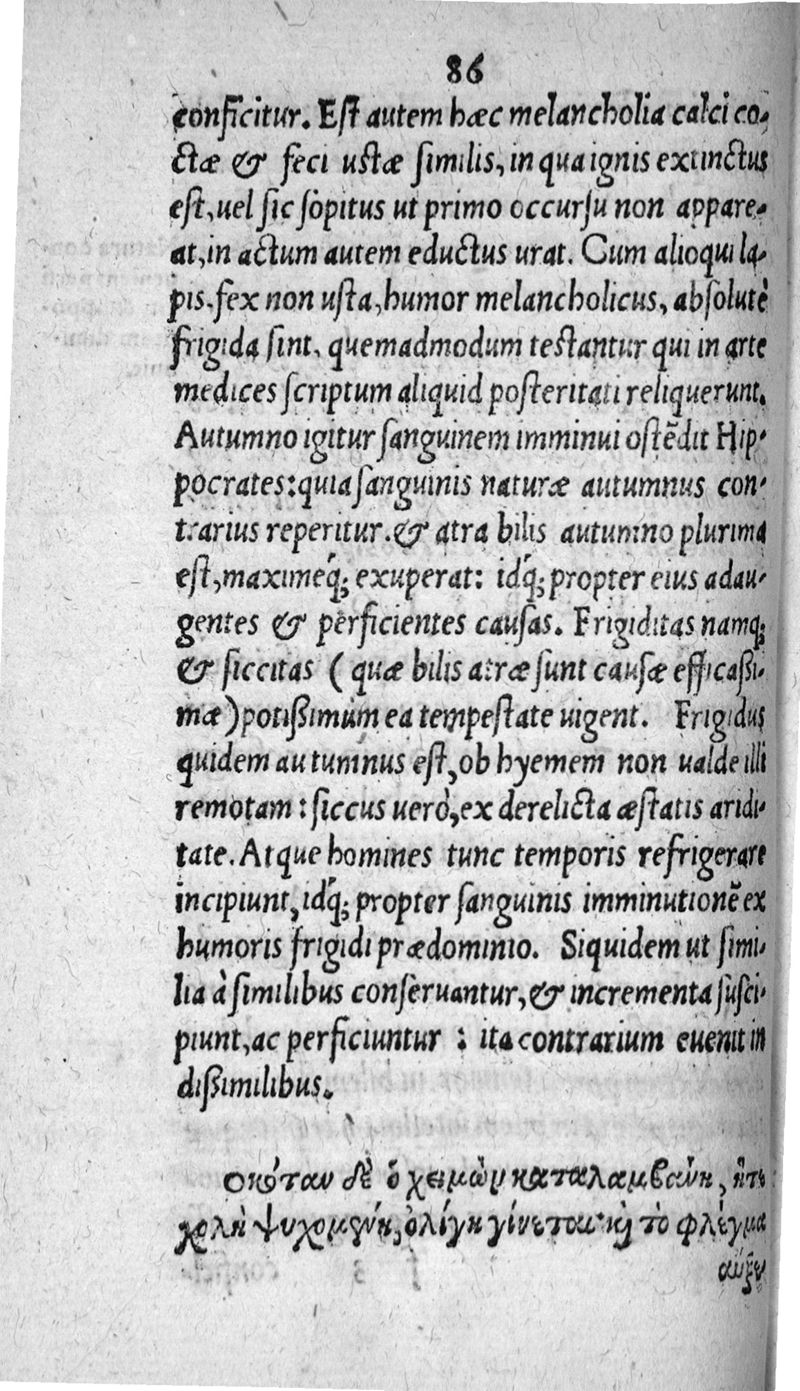 86
conficitur. Est autem hæc melancholia calci co-
ctæ & feci ustæ similis, in qua ignis extinctus
est, uel sic sopitus ut primo occursu non appare-
at, in actum autem eductus urat. Cum alioqui la-
pis. fex non usta, humor melancholicus, absolutè
frigida sint, quemadmodum testantur qui in arte
medices scriptum aliquid posteritati reliquerunt.
Autumno igitur sanguinem imminui ostēdit Hip-
pocrates: quia sanguinis naturæ autumnus con-
trarius reperitur. & atra bilis autumno plurima
est, maximeq́; exuperat: idq́; propter eius adau-
gentes & perficientes causas. Frigiditas namq;
& siccitas (quæ bilis atræ sunt causæ efficaßi-
mæ) potißimùm ea tempestate uigent. Frigidus
quidem autumnus est, ob hyemem non ualde illi
remotam: siccus uerò, ex derelicta æstatis aridi-
tate. Atque homines tunc temporis refrigerare
incipiunt, idq́; propter sanguinis imminutionē ex
humoris frigidi prædominio. Siquidem ut simi-
lia à similibus conseruantur, & incrementa susci-
piunt, ac perficiuntur: ita contrarium euenit in
dißimilibus.
οκόταν δὲ ὁ χειμὼν καταλαμβάνῃ, ἥτε
χολὴ ψυχομένη, ὀλίγη γίνεται· καὶ τὸ φλέγμα
αυξε